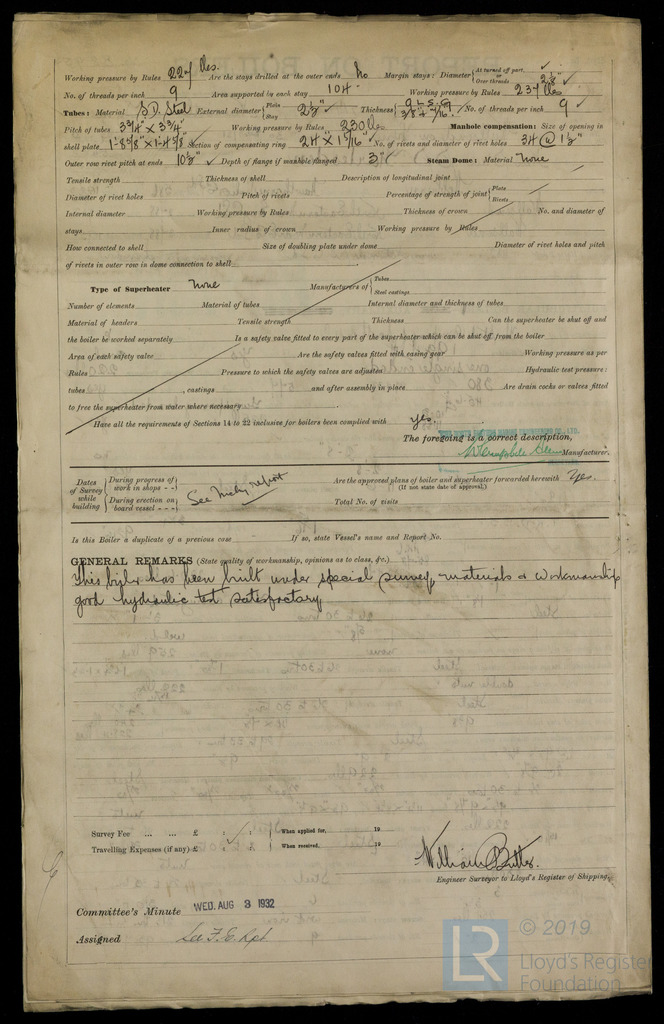 Working pressure by Rules 227 lbs. Are the stays drilled at the outer ends No Margin stays: Diameter { At turned off part, or Over threads 2 1/8" ✓
No. of threads per inch 9 Area supported by each stay 104 Working pressure by Rules 237 lbs
Tubes: Material S.D. Steel External diameter { Plain Stay 2 1/2" ✓ Thickness { 9 L.S.G 3/8" & 5/16" No. of threads per inch 9 ✓
Pitch of tubes 3 3/4" x 3 3/4" Working pressure by Rules 230 lbs Manhole compensation: Size of opening in
shell plate 1'-8 5/8" x 1'-4 5/8" Section of compensating ring 24 x 1 5/16" No. of rivets and diameter of rivet holes 34 @ 1 1/2"
Outer row rivet pitch at ends 10 1/2" ✓ Depth of flange if manhole flanged 3" Steam Dome: Material None
Tensile strength Thickness of shell Description of longitudinal joint
Diameter of rivet holes Pitch of rivets Percentage of strength of joint { Plate Rivets
Internal diameter Working pressure by Rules Thickness of crown No. and diameter of
stays Inner radius of crown Working pressure by Rules
How connected to shell Size of doubling plate under dome Diameter of rivet holes and pitch
of rivets in outer row in dome connection to shell
Type of Superheater None Manufacturers of { Tubes Steel castings
Number of elements Material of tubes Internal diameter and thickness of tubes
Material of headers Tensile strength Thickness Can the superheater be shut off and
the boiler be worked separately Is a safety valve fitted to every part of the superheater which can be shut off from the boiler
Area of each safety valve Are the safety valves fitted with easing gear Working pressure as per
Rules Pressure to which the safety valves are adjusted Hydraulic test pressure:
tubes , castings and after assembly in place Are drain cocks or valves fitted
to free the superheater from water where necessary
Have all the requirements of Sections 14 to 22 inclusive for boilers been complied with yes.
The foregoing is a correct description,
Manufacturer.
Dates of Survey while building { During progress of work in shops - - During erection on board vessel - - - } See Mchy report Are the approved plans of boiler and superheater forwarded herewith Yes.
(If not state date of approval.)
Total No. of visits
Is this Boiler a duplicate of a previous case If so, state Vessel's name and Report No.
GENERAL REMARKS (State quality of workmanship, opinions as to class, &c.)
This boiler has been built under special survey, materials & workmanship
good hydraulic test satisfactory.
Survey Fee ... ... £ : : When applied for, 19
Travelling Expenses (if any) £ : : When received, 19
William Butler.
Engineer Surveyor to Lloyd's Register of Shipping.
Committee's Minute WED. AUG 3 1932
Assigned See F.E. Rpt
© 2019
LR Lloyd's Register
Foundation